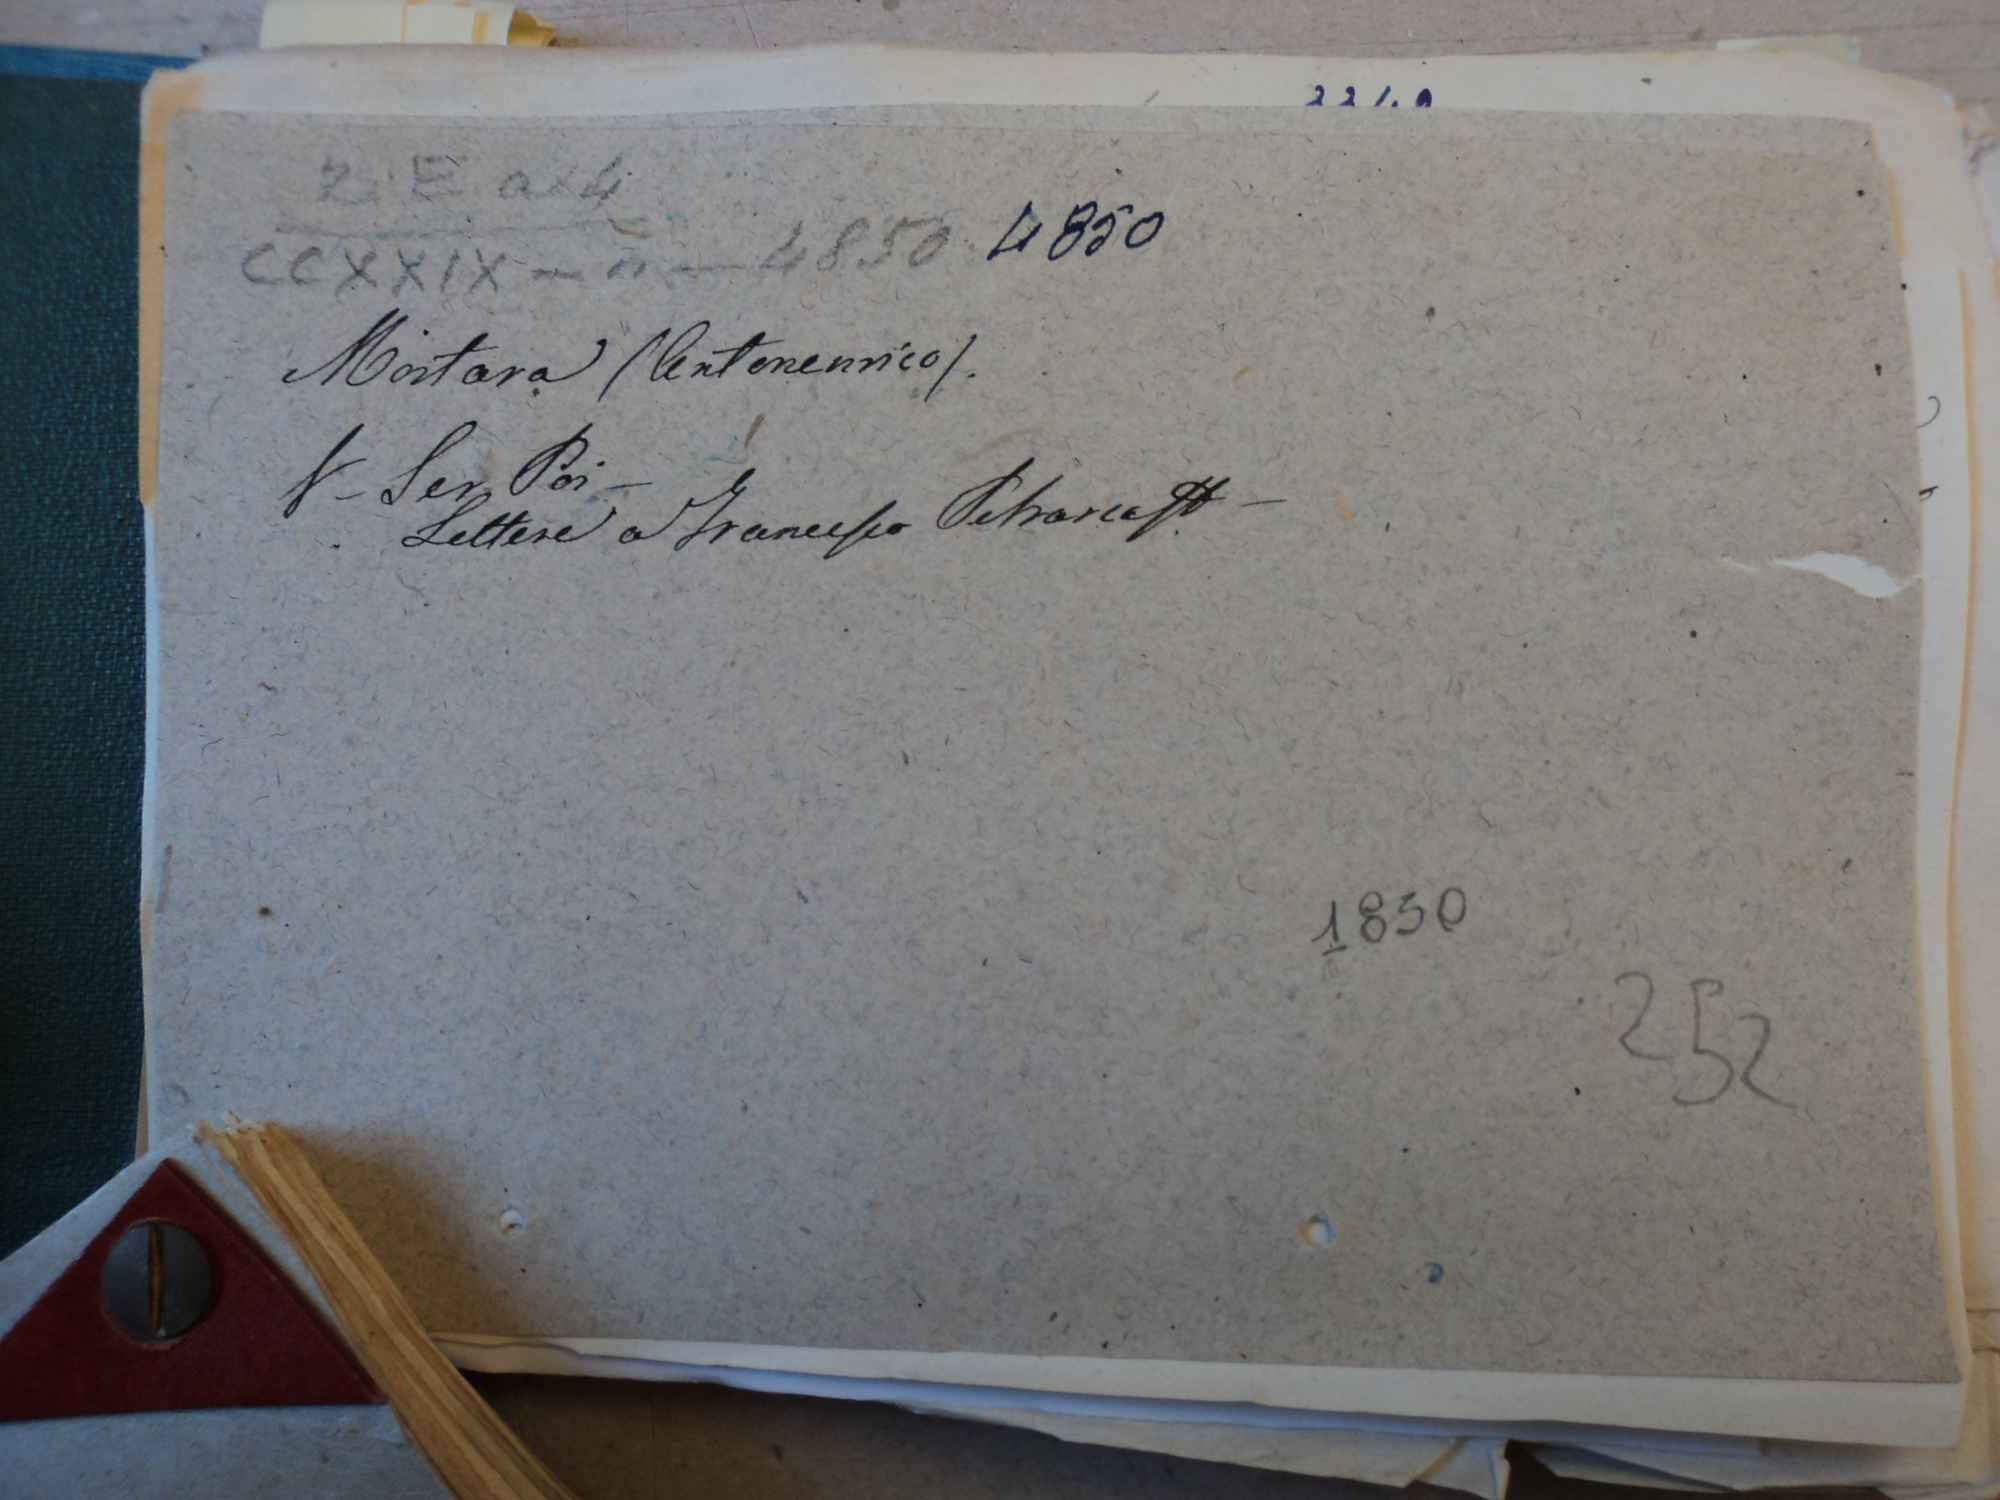 Z. E a x 4
CCXXIX — n — 4850 4850
Mortara (Antonenrico).
V – Ser Poi –
Lettere a Francesco Petrarca –
1850
252